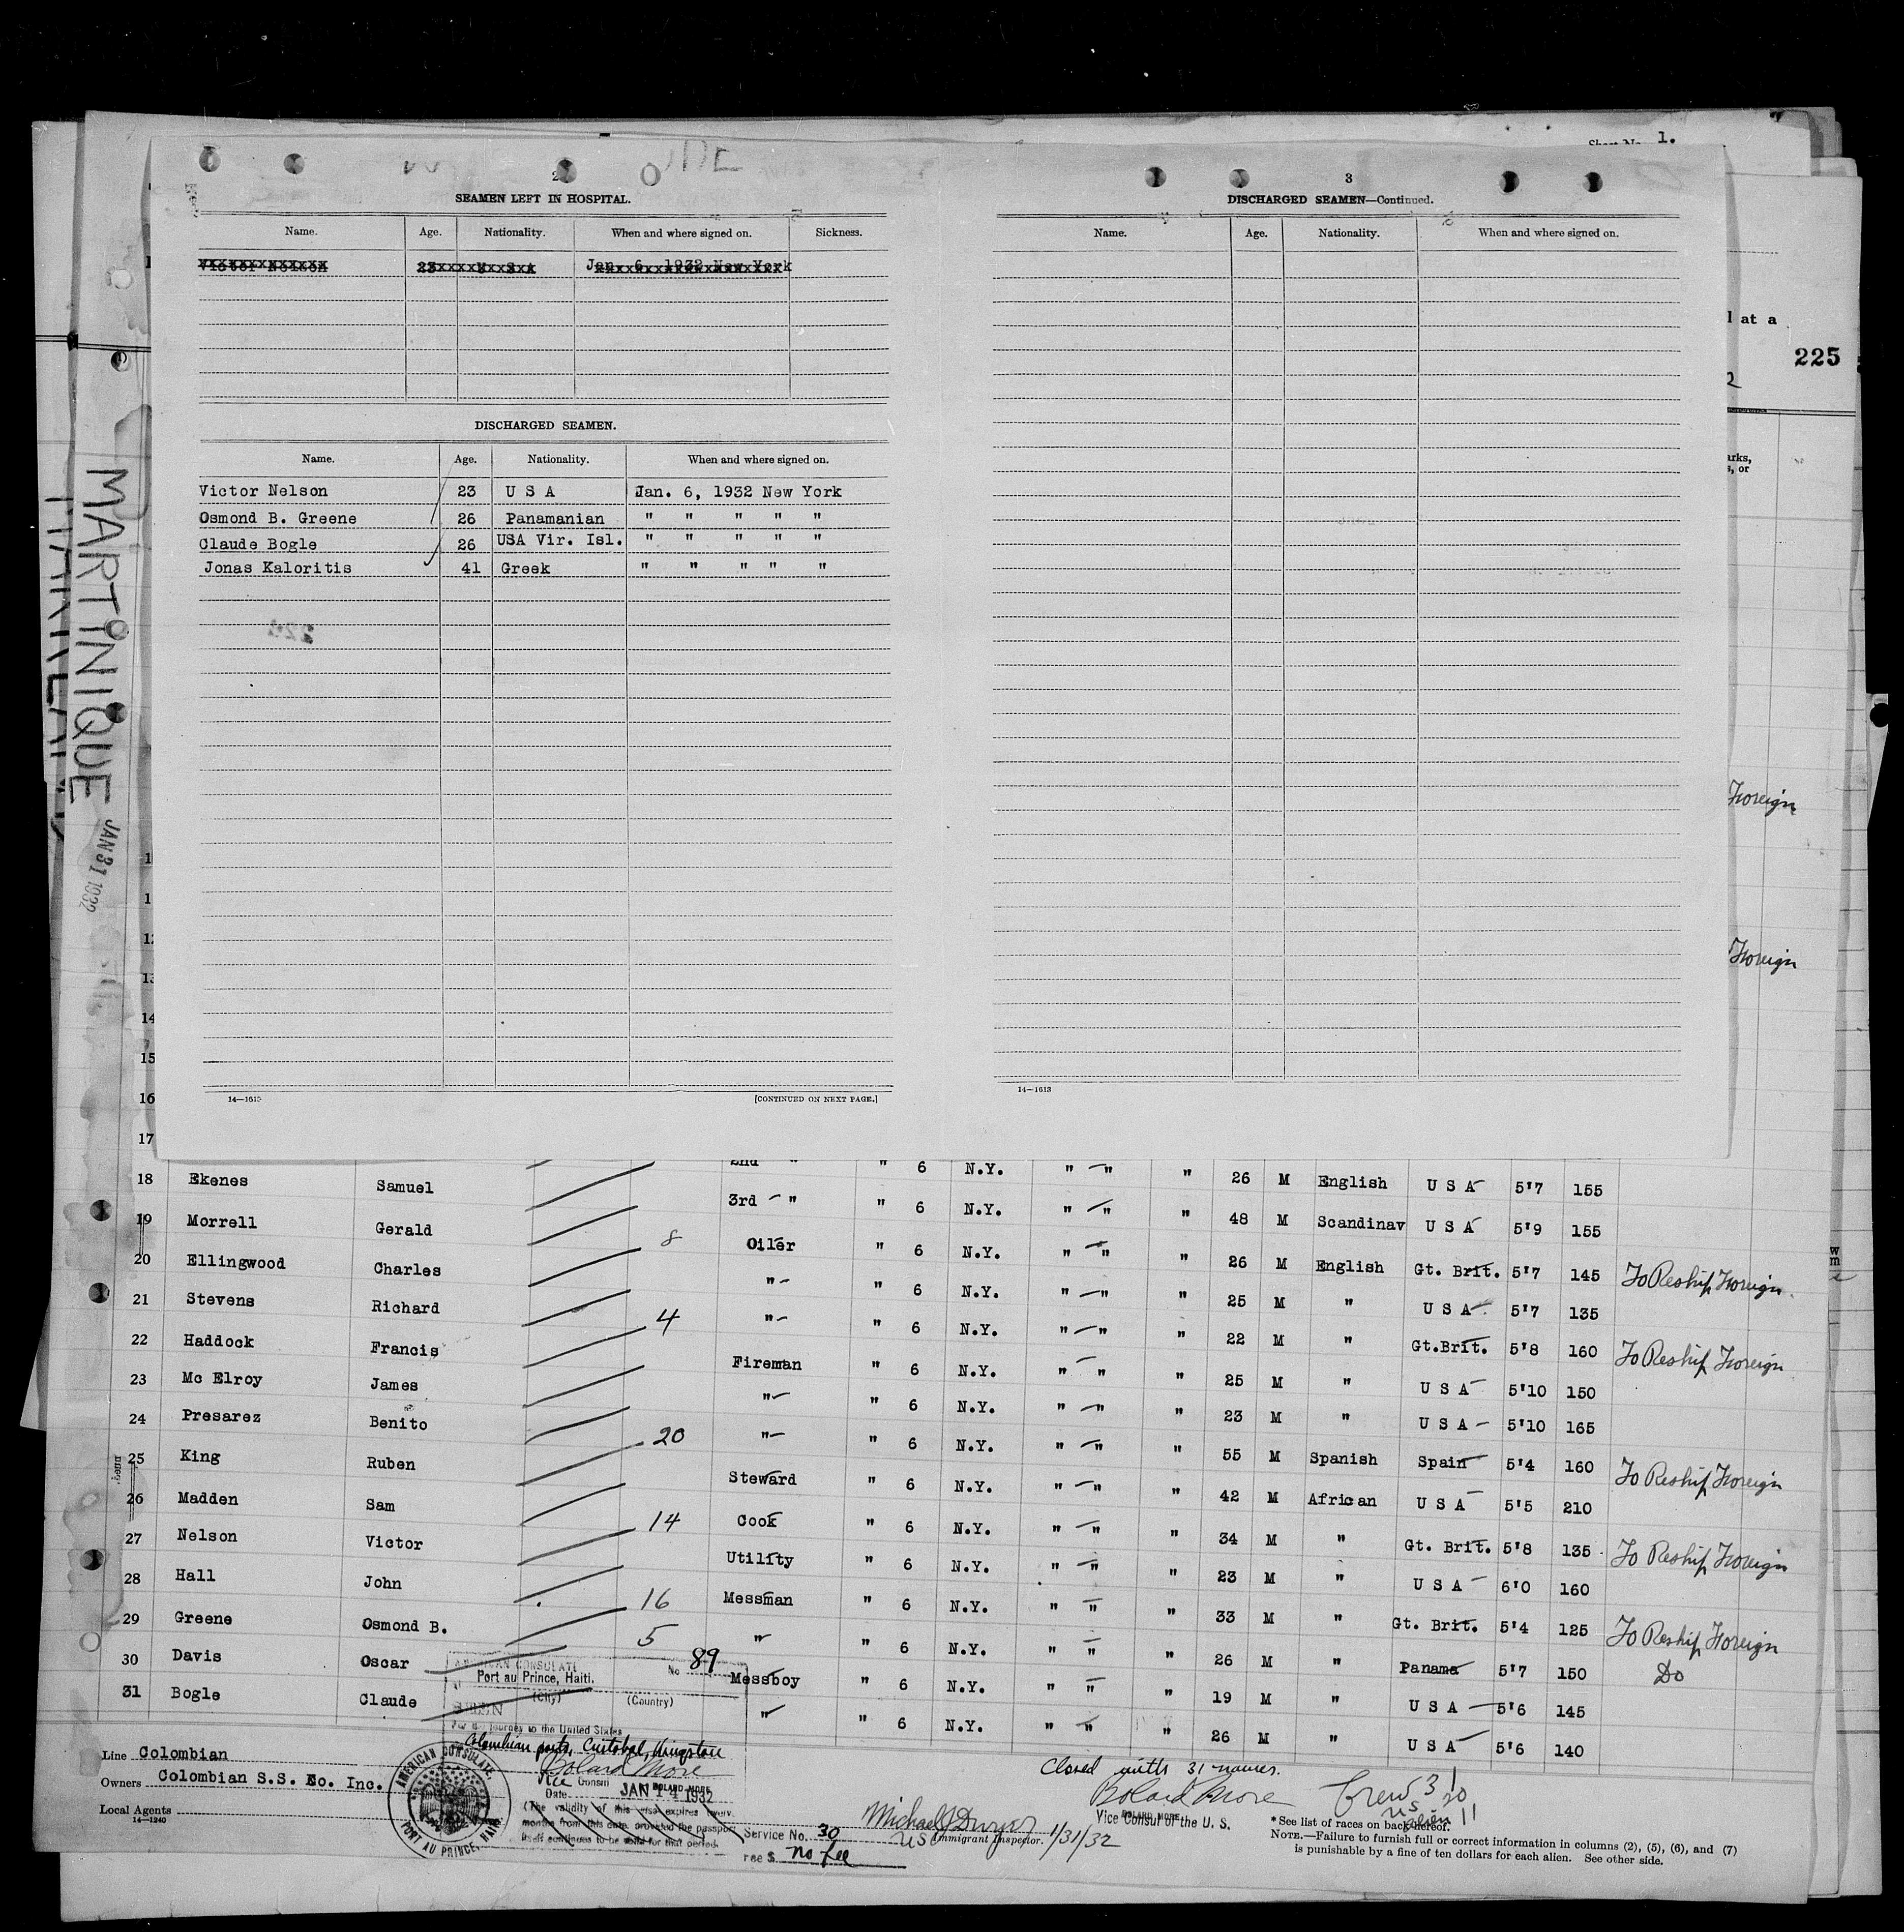 Sheet No. 1.
2
SEAMEN LEFT IN HOSPITAL.
Name. Age. Nationality. When and where signed on. Sickness.
Victor Nelson 23 U S A Jan. 6, 1932 New York
DISCHARGED SEAMEN.
Name. Age. Nationality. When and where signed on.
Victor Nelson 23 U S A Jan. 6, 1932 New York
Osmond B. Greene 26 Panamanian " " " " "
Claude Bogle 26 USA Vir. Isl. " " " " "
Jonas Kaloritis 41 Greek " " " " "
14—1613 [CONTINUED ON NEXT PAGE.]
3
DISCHARGED SEAMEN—Continued.
Name. Age. Nationality. When and where signed on.
14—1613
l at a
225
2
arks,
s, or
Foreign
Foreign
MARTINIQUE
JAN 31 1932
12
13
14
15
16
17 2nd " " 6 N.Y. " " "
18 Ekenes Samuel 3rd " " 6 N.Y. " " " 26 M English U S A 5'7 155
19 Morrell Gerald 8 Oiler " 6 N.Y. " " " 48 M Scandinav U S A 5'9 155
20 Ellingwood Charles " " 6 N.Y. " " " 26 M English Gt. Brit. 5'7 145 To Reship Foreign
21 Stevens Richard 4 " " 6 N.Y. " " " 25 M " U S A 5'7 135
22 Haddock Francis Fireman " 6 N.Y. " " " 22 M " Gt.Brit. 5'8 160 To Reship Foreign
23 Mc Elroy James " " 6 N.Y. " " " 25 M " U S A 5'10 150
24 Presarez Benito 20 " " 6 N.Y. " " " 23 M " U S A 5'10 165
25 King Ruben Steward " 6 N.Y. " " " 55 M Spanish Spain 5'4 160 To Reship Foreign
26 Madden Sam 14 Cook " 6 N.Y. " " " 42 M African U S A 5'5 210
27 Nelson Victor Utility " 6 N.Y. " " " 34 M " Gt. Brit. 5'8 135 To Reship Foreign
28 Hall John 16 Messman " 6 N.Y. " " " 23 M " U S A 6'0 160
29 Greene Osmond B. 5 " " 6 N.Y. " " " 33 M " Gt. Brit. 5'4 125 To Reship Foreign
30 Davis Oscar Messboy " 6 N.Y. " " " 26 M " Panama 5'7 150 Do
31 Bogle Claude " " 6 N.Y. " " " 19 M " U S A 5'6 145
26 M " U S A 5'6 140
AMERICAN CONSULATE
No 89
Port au Prince, Haiti.
(City) (Country)
SEEN
For the journey to the United States
Colombian ports, Cristobal, Kingston
Boland More
Vice Consul BOLAND MORE
Date JAN 14 1932
(The validity of this visa expires twelve
months from this date, provided the passport
itself continues to be valid for that period.
Service No. 30
Fee $ No fee
AMERICAN CONSULATE,
PORT AU PRINCE, HAITI
Line Colombian
Owners Colombian S.S. Co. Inc.
Local Agents
14—1240
Closed with 31 names.
Boland More
BOLAND MORE
Vice Consul of the U. S.
US Immigrant Inspector. 1/31/32
Crew 31
US 20
Alien 11
* See list of races on back hereof.
NOTE.—Failure to furnish full or correct information in columns (2), (5), (6), and (7)
is punishable by a fine of ten dollars for each alien. See other side.